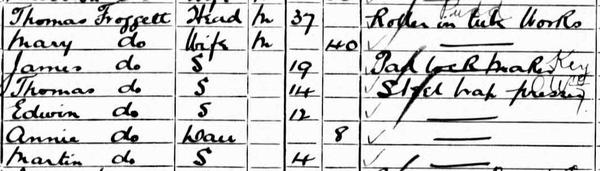 Thomas Froggett Head M 37 Roller in tube Works
Mary do Wife M 40
James do S 19 Pad lock maker Key
Thomas do S 14 Steel trap presser
Edwin do S 12
Annie do Dau 8
Martin do S 4